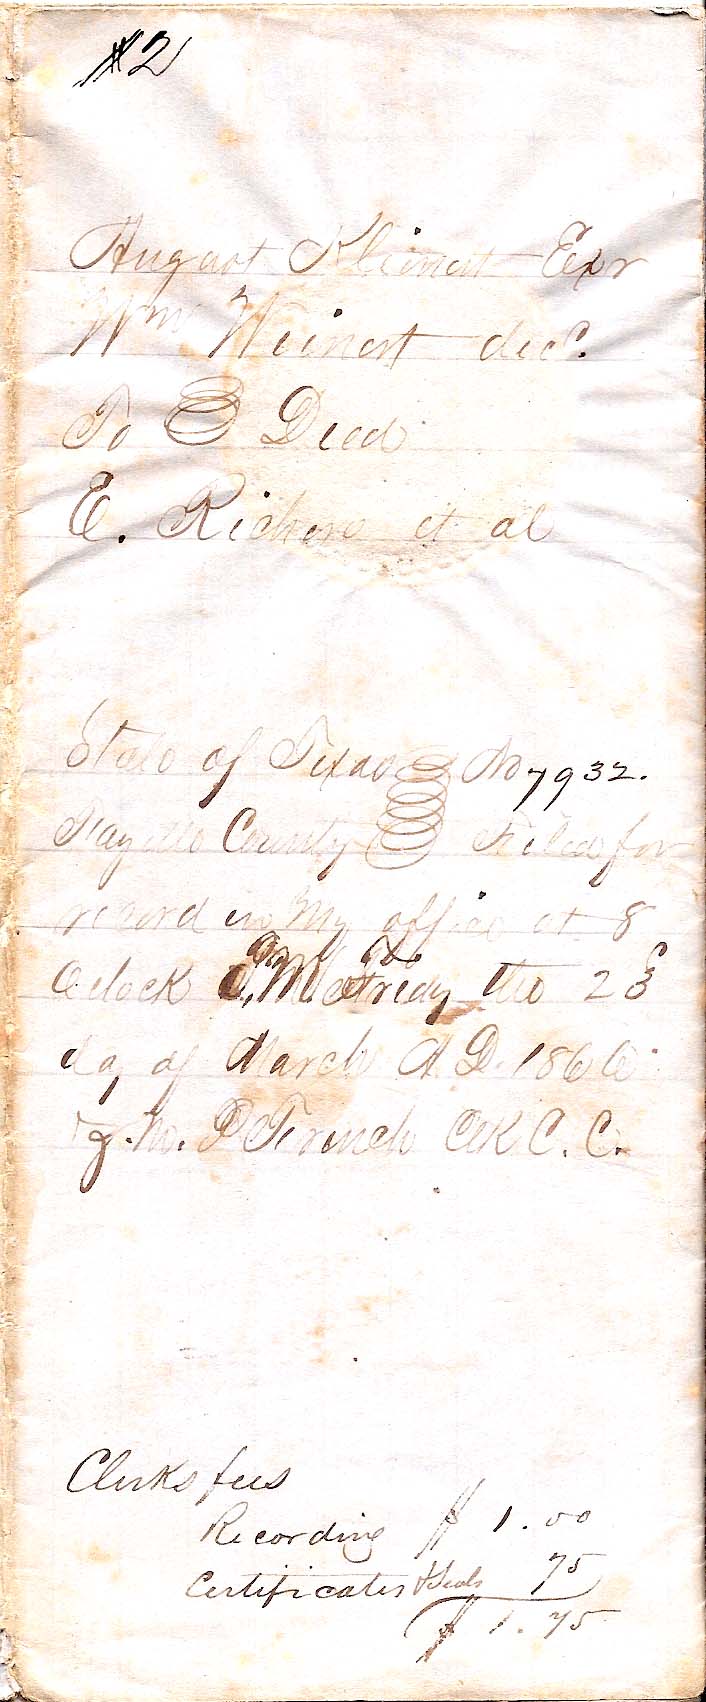 #2
August Kleinert Exr
Wm Weinert decd.
To Deed
E. Richers et al
State of Texas No 7932.
Fayette County Filed for
record in my office at 8
Oclock M the 23
day of March A.D. 1866
P French Clk C. C.
Clerks fees
Recording $ 1.00
Certificates & Seals 75
$ 1.75